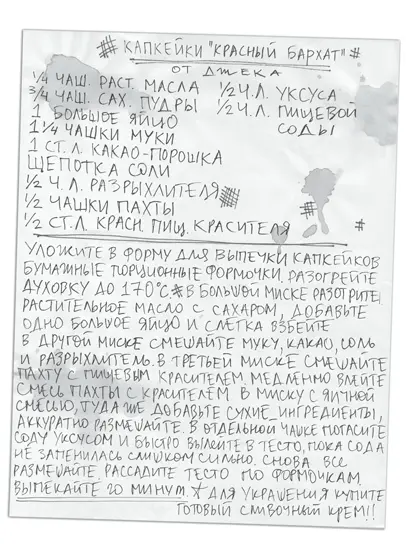 # КАПКЕЙКИ "КРАСНЫЙ БАРХАТ" #
ОТ ДЖЕКА
1/4 ЧАШ. РАСТ. МАСЛА 1/2 Ч.Л. УКСУСА
3/4 ЧАШ. САХ. ПУДРЫ 1/2 Ч.Л. ПИЩЕВОЙ
1 БОЛЬШОЕ ЯЙЦО СОДЫ
1 1/4 ЧАШКИ МУКИ
1 СТ. Л. КАКАО-ПОРОШКА
ЩЕПОТКА СОЛИ
1/2 Ч.Л. РАЗРЫХЛИТЕЛЯ
1/2 ЧАШКИ ПАХТЫ
1/2 СТ.Л. КРАСН. ПИЩ. КРАСИТЕЛЯ
УЛОЖИТЕ В ФОРМУ ДЛЯ ВЫПЕЧКИ КАПКЕЙКОВ
БУМАЖНЫЕ ПОРЦИОННЫЕ ФОРМОЧКИ. РАЗОГРЕЙТЕ
ДУХОВКУ ДО 170°С. # В БОЛЬШОЙ МИСКЕ РАЗОТРИТЕ
РАСТИТЕЛЬНОЕ МАСЛО С САХАРОМ, ДОБАВЬТЕ
ОДНО БОЛЬШОЕ ЯЙЦО И СЛЕГКА ВЗБЕЙТЕ
В ДРУГОЙ МИСКЕ СМЕШАЙТЕ МУКУ, КАКАО, СОЛЬ
И РАЗРЫХЛИТЕЛЬ. В ТРЕТЬЕЙ МИСКЕ СМЕШАЙТЕ
ПАХТУ С ПИЩЕВЫМ КРАСИТЕЛЕМ. МЕДЛЕННО ВЛЕЙТЕ
СМЕСЬ ПАХТЫ С КРАСИТЕЛЕМ В МИСКУ С ЯИЧНОЙ
СМЕСЬЮ, ТУДА ЖЕ ДОБАВЬТЕ СУХИЕ ИНГРЕДИЕНТЫ,
АККУРАТНО РАЗМЕШАЙТЕ. В ОТДЕЛЬНОЙ ЧАШКЕ ПОГАСИТЕ
СОДУ УКСУСОМ И БЫСТРО ВЫЛЕЙТЕ В ТЕСТО, ПОКА СОДА
НЕ ЗАПЕНИЛАСЬ СЛИШКОМ СИЛЬНО. СНОВА ВСЕ
РАЗМЕШАЙТЕ. РАССАДИТЕ ТЕСТО ПО ФОРМОЧКАМ.
ВЫПЕКАЙТЕ 20 МИНУТ. * ДЛЯ УКРАШЕНИЯ КУПИТЕ
ГОТОВЫЙ СЛИВОЧНЫЙ КРЕМ!!